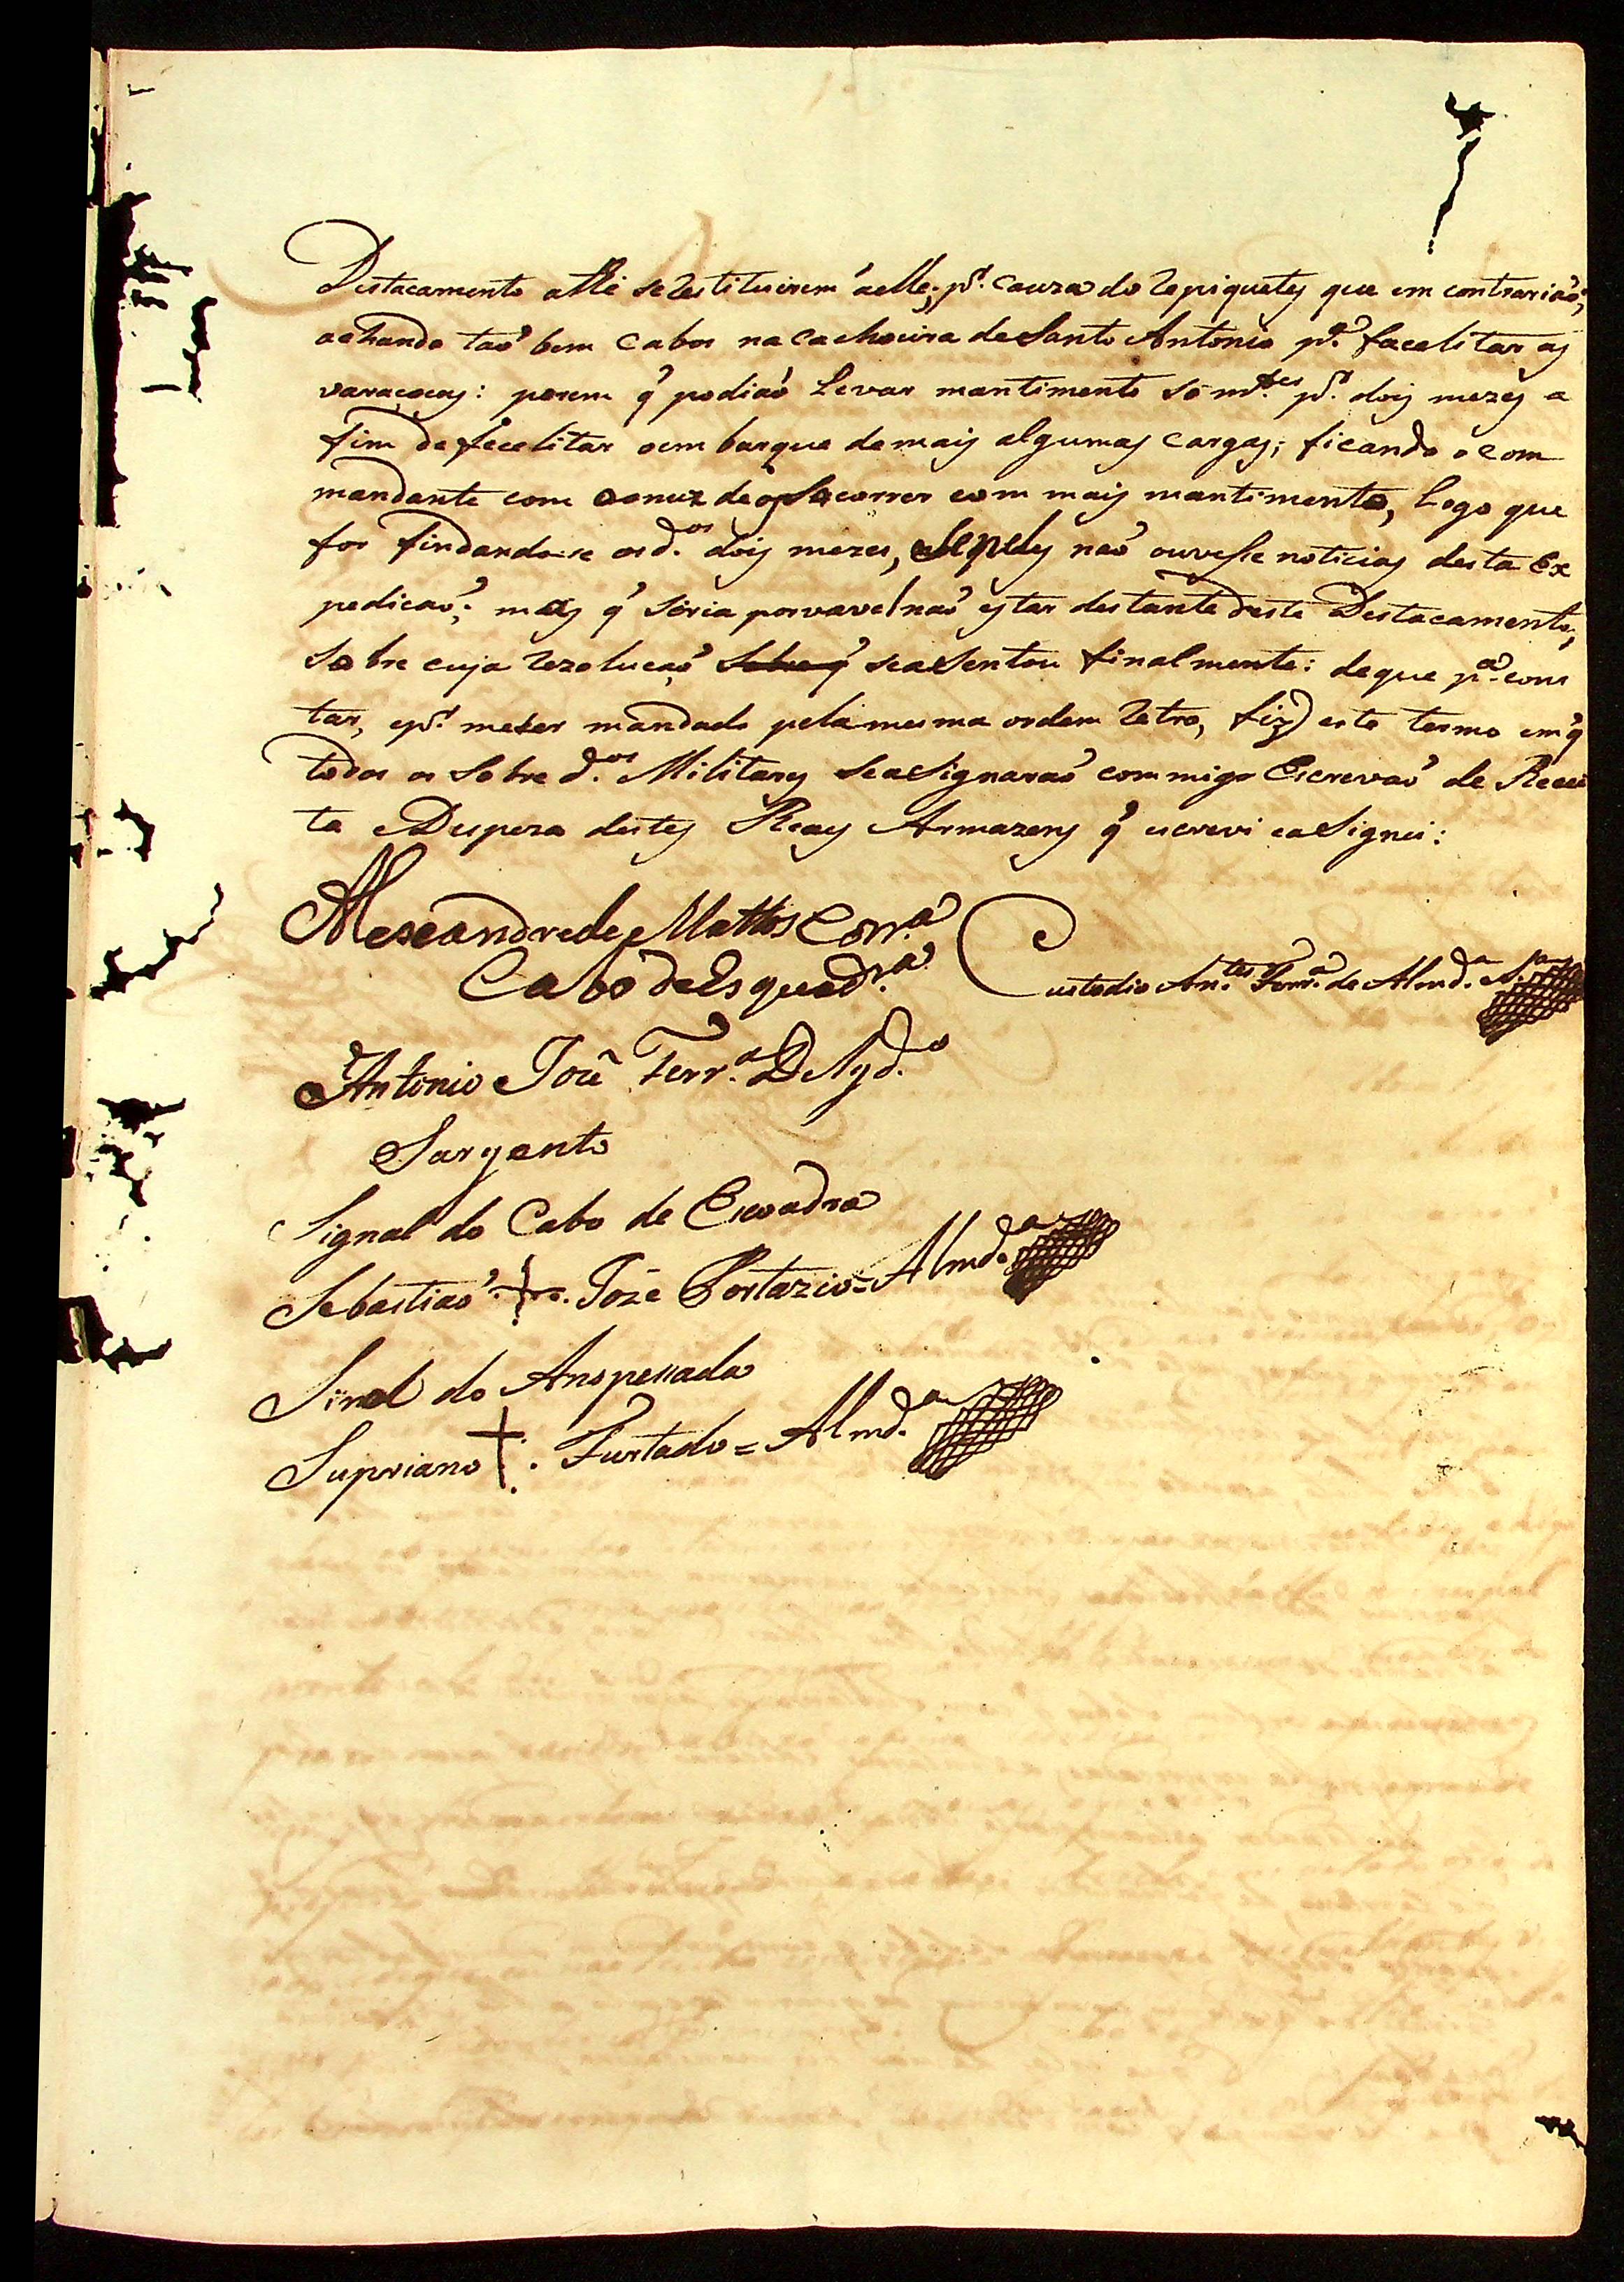 Destacamento athe se restituirem áelle; p.r cauza do repiquetes que em contrariaõ;
achando taõ bem cabos na cachoeira de Santo Antonio p.a facelitar as
varaçoens: porem q̃ podiaõ levar mantimento só m.tes p.a dois mezes a
fim de fecelitar o embarque de mais algumas cargas; ficando o com
mandante com de os Socorrer com mais mantimento, logo que
for findandose os d.os dois mezes, naõ ouvesse noticias desta Ex
pedicaõ; mas q̃ seria porvavel naõ estar destante deste Destacamento;
Sobre cuja rezolucaõ Sobre q̃ se asentou finalmente: de que p.a cons
tar, e p.r me ser mandado pela mesma ordem retro, fiz este termo em q̃
todos os Sobre d.os Militares se asignaraõ commigo Escrevaõ de Recei
ta e Despeza destes Reaes Armazens q̃ escrevi e asignei:
Alexandre de Mattos Corr.a
Cabo de Esquadr.a
Custodio An.to Ferr.a de Almd.a
Antonio Joze Ferr.a Delgd.o
Sargento
Signal do Cabo de Escoadra
Sebastiaõ + Joze Portazio = Almd.a
Sinal do Anspessada
Supriano +. Furtado = Almd.a